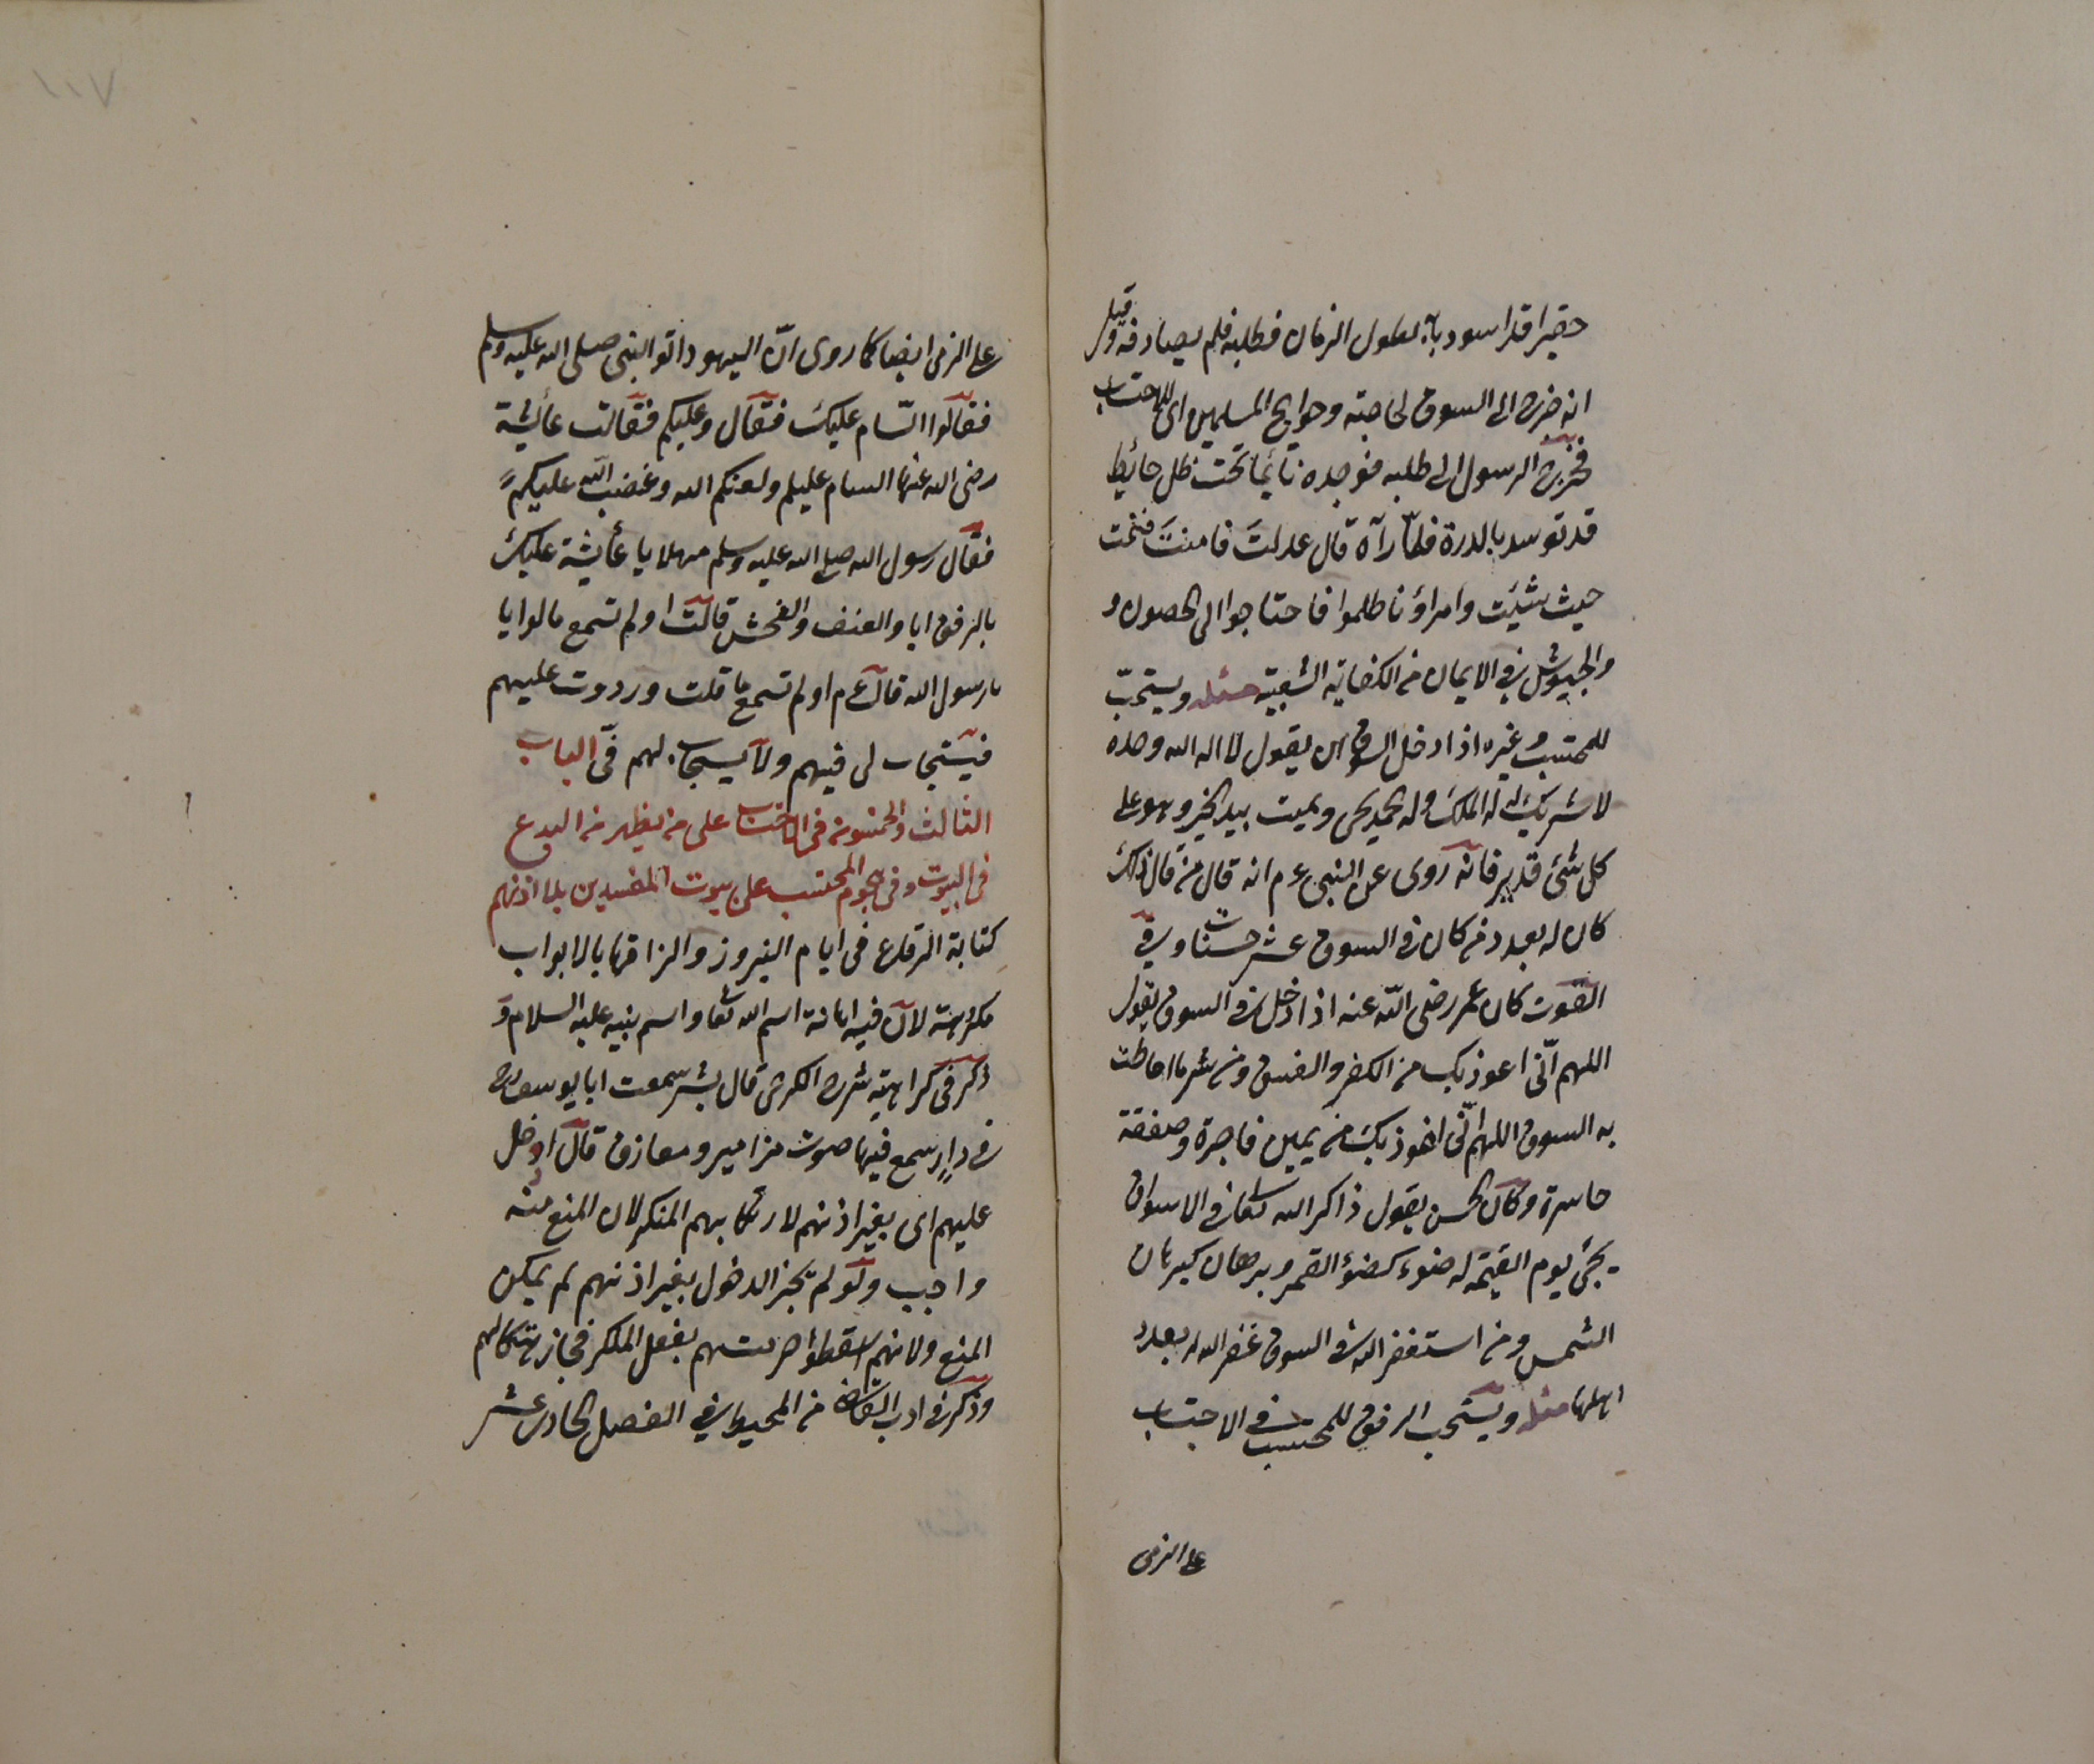 حقيرا قد اسود بابه لطول الزمان فطلبه فلم يصادفه وقيل
انه خرج الى السوق لحاجته وحوايج المسلمين اى للاحتساب
فخرج الرسول الى طلبه فوجده نائما تحت ظل حائيط
قد توسد بالدرة فلما رآه قال عدلت فامنت فنمت
حيث شئيت وامراؤنا ظلموا فاحتاجوا الى الحصون و
والجيوش فى الايمان من الكفاية الشعبية مسئله ويستحبّ
للمحتسب وغيره اذا دخل السوق ان يقول لا اله الا الله وحده
لا شريك له له الملك وله الحمد يحى ويميت بيده الخير وهو على
كل شئ قدير فانه روى عن النبى ءم انه قال من قال ذلك
كان له بعدد من كان فى السوق عشر حسنات وفى
القوت كان عمر رضى اللّه عنه اذا دخل فى السوق يقول
اللهم انّى اعوذ بك من الكفر والفسق ومن شر ما احاطت
به السوق اللهم انّى اعوذ بك من يمين فاجرة وصفقة
خاسرة وكان الحسن يقول ذاكر الله تعالى فى الاسواق
يجئ يوم القيمة له ضوء كضوء القمر وبرهان كبرهان
الشمس ومن استغفر الله فى السوق غفر الله له بعدد
اهلها مسئله ويستحب الرفق للمحتسب فى الاحتساب
على الذمى
١٠٧
على الذمى ايضا كما روى انّ اليهود اتوا النبى صلى الله عليه وسلم
فقالوا السّام عليك فقال وعليكم فقالت عائيشة
رضى الله عنها السام عليكم ولعنكم الله وغضب اللّه عليكم
فقال رسول الله صلى الله عليه وسلم مهلا يا عائيشة عليك
بالرفق ايا والعنف والفحش قالت اولم تسمع ما لوا يا
يا رسول الله قال ءم اولم تسمع ما قلت ورددت عليهم
فيستجاب لى فيهم ولا يستجاب لهم فىّ الباب
الثالث والخمسون فى الاحتساب على من يظهر من البدع
فى البيوت وفى هجوم المحتسب على بيوت المفسدين بلا اذنهم
كتابة الرقاع فى ايام النيروز والزاقها بالابواب
مكروهة لان فيه اهانة اسم الله تعا واسم نبيه عليه السلام و
ذكر فى كراهية شرح الكرخى قال بشر سمعت ابا يوسف رح
فى دارٍ سمع فيها صوت مزامير ومعازف قال ادخل
عليهم اى بغير اذنهم لارتكابهم المنكر لان المنع منه
واجب ولو لم يجز الدخول بغير اذنهم لم يمكن
المنع ولانهم اسقطوا حرمتهم بفعل المنكر فجاز هتكا لهم
وذكر فى ادب القاضى من المحيط فى الفصل الحادى عشر